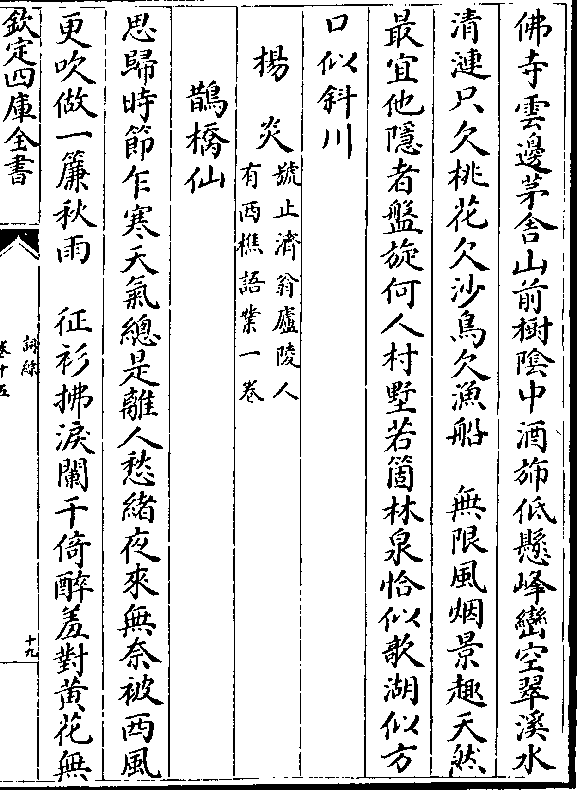 佛寺雲邊茅舍山前樹隂中酒斾低懸峰巒空翠溪水
清漣只欠桃花欠沙鳥欠漁船　無限風烟景趣天然
最宜他隱者盤旋何人村墅若箇林泉恰似欹湖似方
口似斜川
楊炎
號止濟翁廬陵人
有西樵語業一卷
鵲橋仙
思歸時節乍寒天氣總是離人愁緒夜來無奈被西風
更吹做一簾秋雨　征衫拂淚闌干倚醉羞對黄花無
欽定四庫全書
詞綜
卷十五
十九